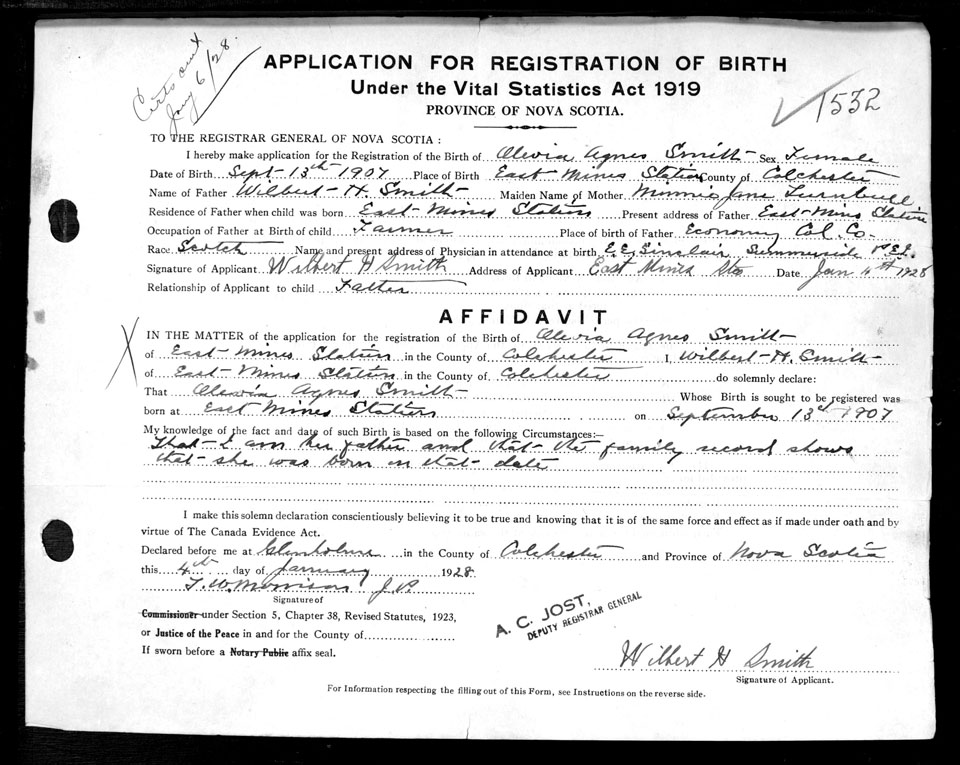 Certs out
Jany 6/28.
APPLICATION FOR REGISTRATION OF BIRTH
Under the Vital Statistics Act 1919
PROVINCE OF NOVA SCOTIA.
1532
TO THE REGISTRAR GENERAL OF NOVA SCOTIA :
I hereby make application for the Registration of the Birth of Alevia Agnes Smith Sex Female
Date of Birth Sept 13th 1907 Place of Birth East Mines Station County of Colchester
Name of Father Wilbert H Smith Maiden Name of Mother Minnie Jane Turnbull
Residence of Father when child was born East Mines Station Present address of Father East Mines Station
Occupation of Father at Birth of child Farmer Place of birth of Father Economy Col. Co.
Race Scotch Name and present address of Physician in attendance at birth E. E. Sinclair Summerside P.E.I.
Signature of Applicant Wilbert H Smith Address of Applicant East Mines Sta Date Jan 4th 1928
Relationship of Applicant to child Father
AFFIDAVIT
IN THE MATTER of the application for the registration of the Birth of Alevia Agnes Smith
of East Mines Station in the County of Colchester I, Wilbert H. Smith
of East Mines Station in the County of Colchester do solemnly declare:
That Alevia Agnes Smith Whose Birth is sought to be registered was
born at East Mines Station on September 13th 1907
My knowledge of the fact and date of such Birth is based on the following Circumstances:—
That I am her father and that the family record shows
that she was born on that date
I make this solemn declaration conscientiously believing it to be true and knowing that it is of the same force and effect as if made under oath and by
virtue of The Canada Evidence Act.
Declared before me at Glenholme in the County of Colchester and Province of Nova Scotia
this 4th day of January 1928
T. W. Morrison J.P.
Signature of
Commissioner under Section 5, Chapter 38, Revised Statutes, 1923,
or Justice of the Peace in and for the County of
If sworn before a Notary Public affix seal.
A. C. JOST,
DEPUTY REGISTRAR GENERAL
Wilbert H Smith
Signature of Applicant.
For Information respecting the filling out of this Form, see Instructions on the reverse side.